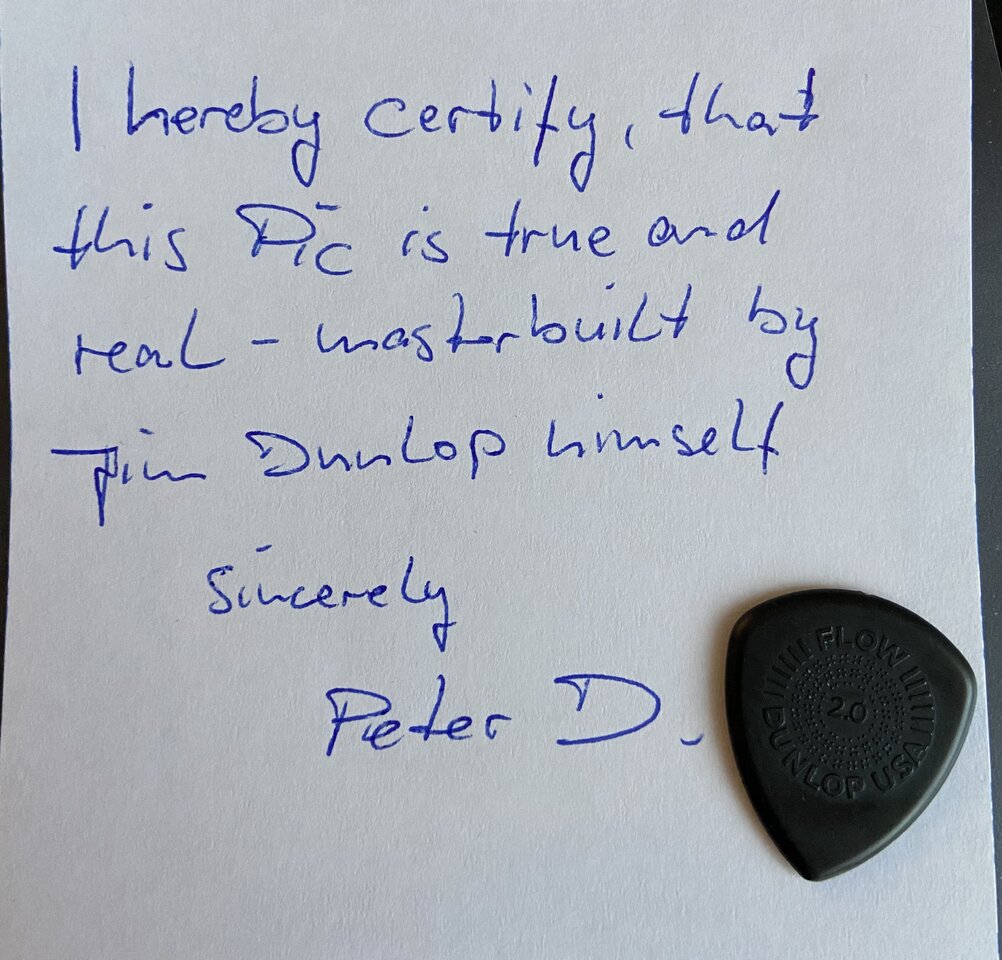 I hereby certify, that
this Pic is true and
real - masterbuilt by
Jim Dunlop himself
sincerely
Peter D.
FLOW
2.0
DUNLOP USA